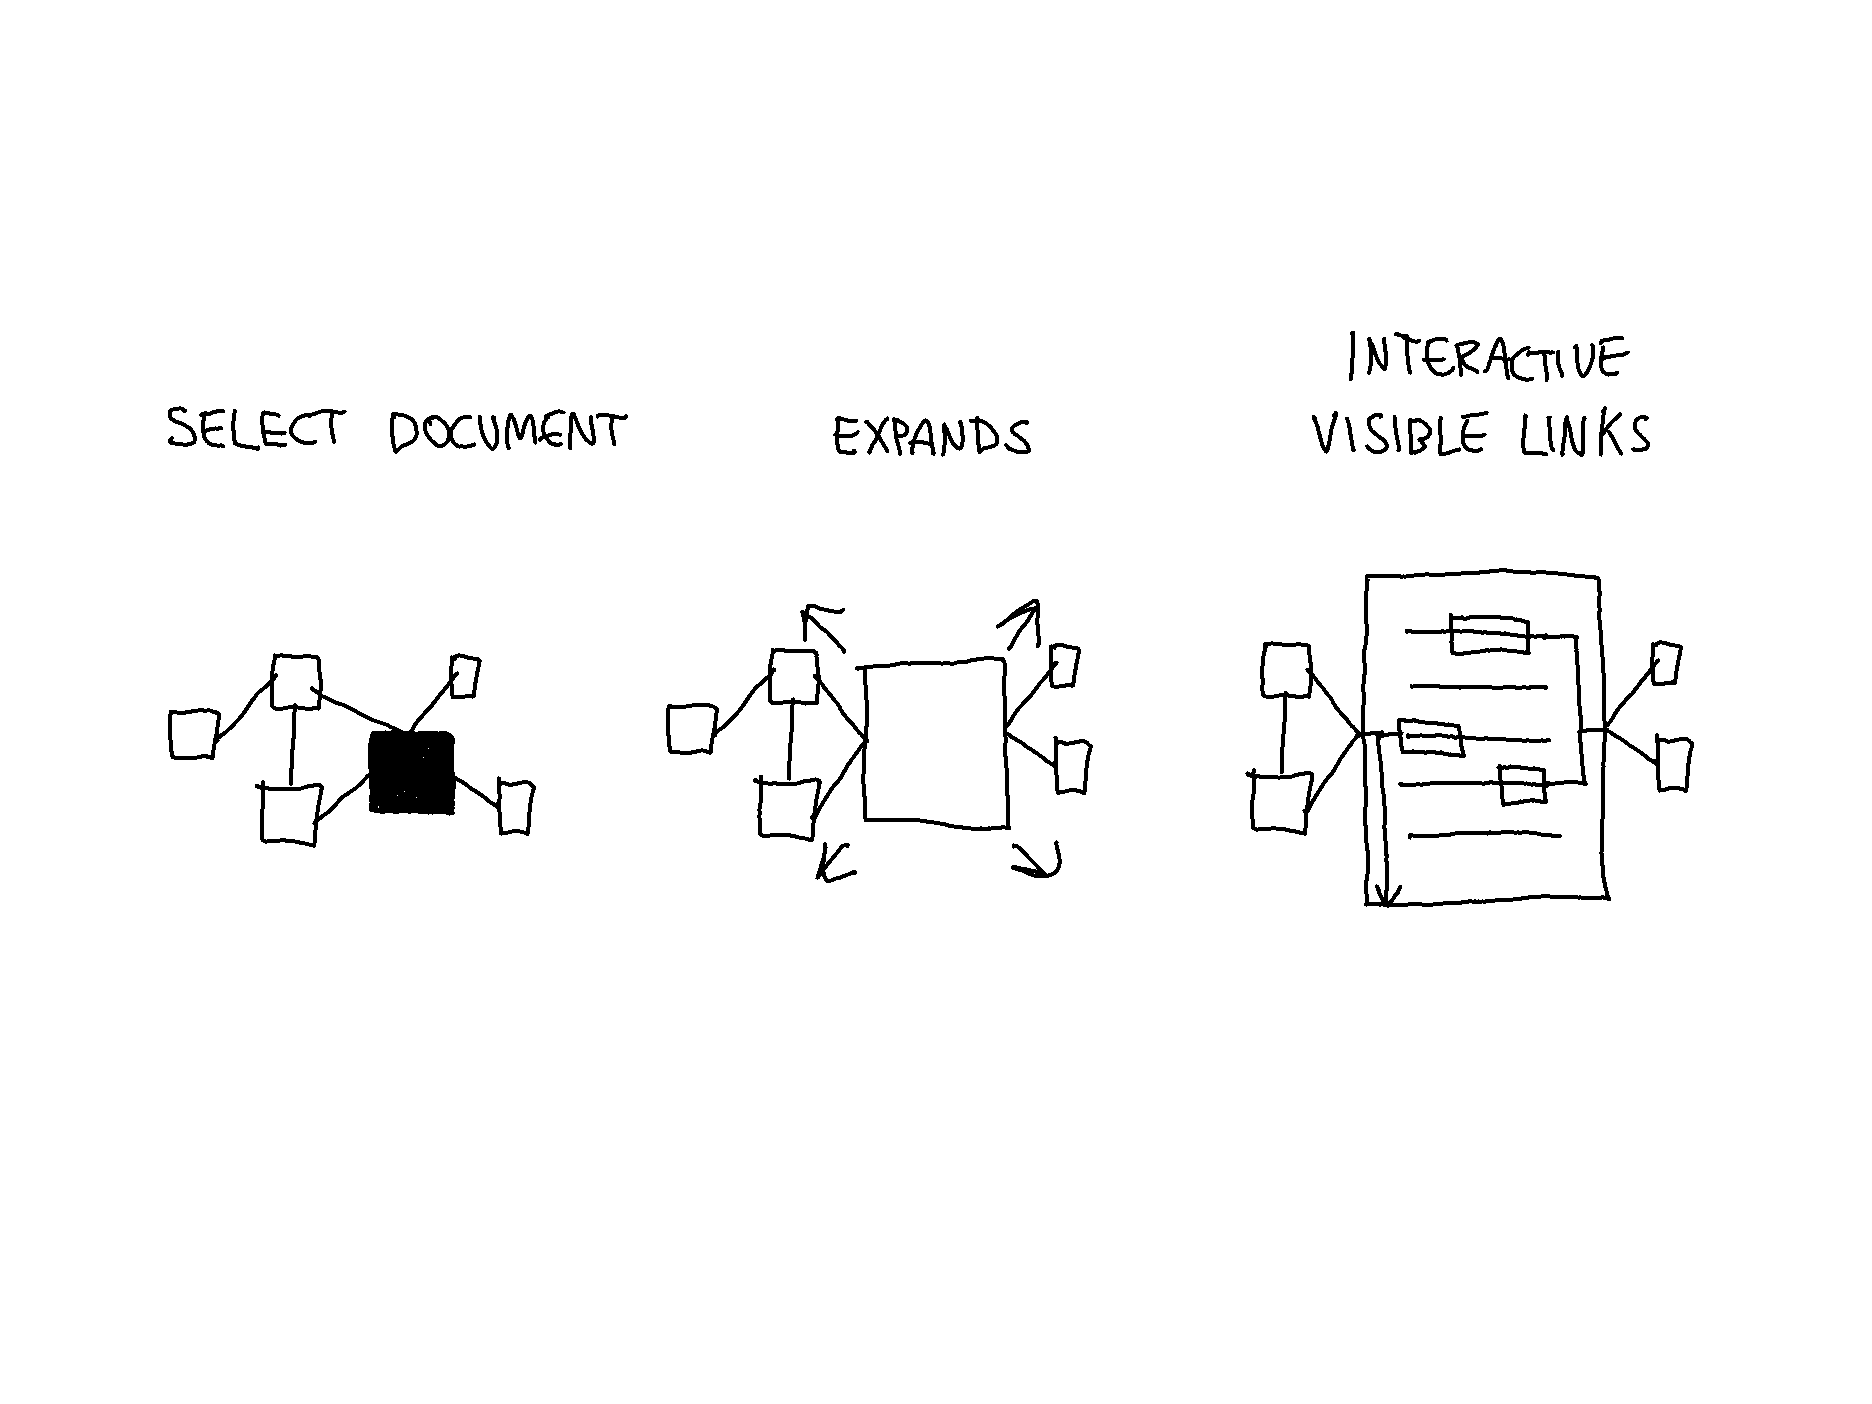 SELECT DOCUMENT
EXPANDS
INTERACTIVE
VISIBLE LINKS